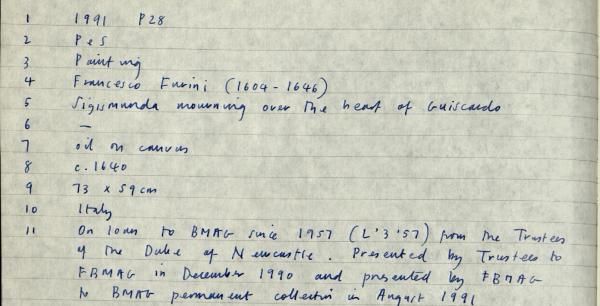 1 1991 P28
2 P&S
3 Painting
4 Francesco Furini (1604-1646)
5 Sigismunda mourning over the heart of Guiscardo
6 —
7 oil on canvas
8 c.1640
9 73 x 59cm
10 Italy
11 On loan to BMAG since 1957 (L'3'57) from the Trustees
of the Duke of Newcastle. Presented by Trustees to
FBMAG in December 1990 and presented by FBMAG
to BMAG permanent collection in August 1991